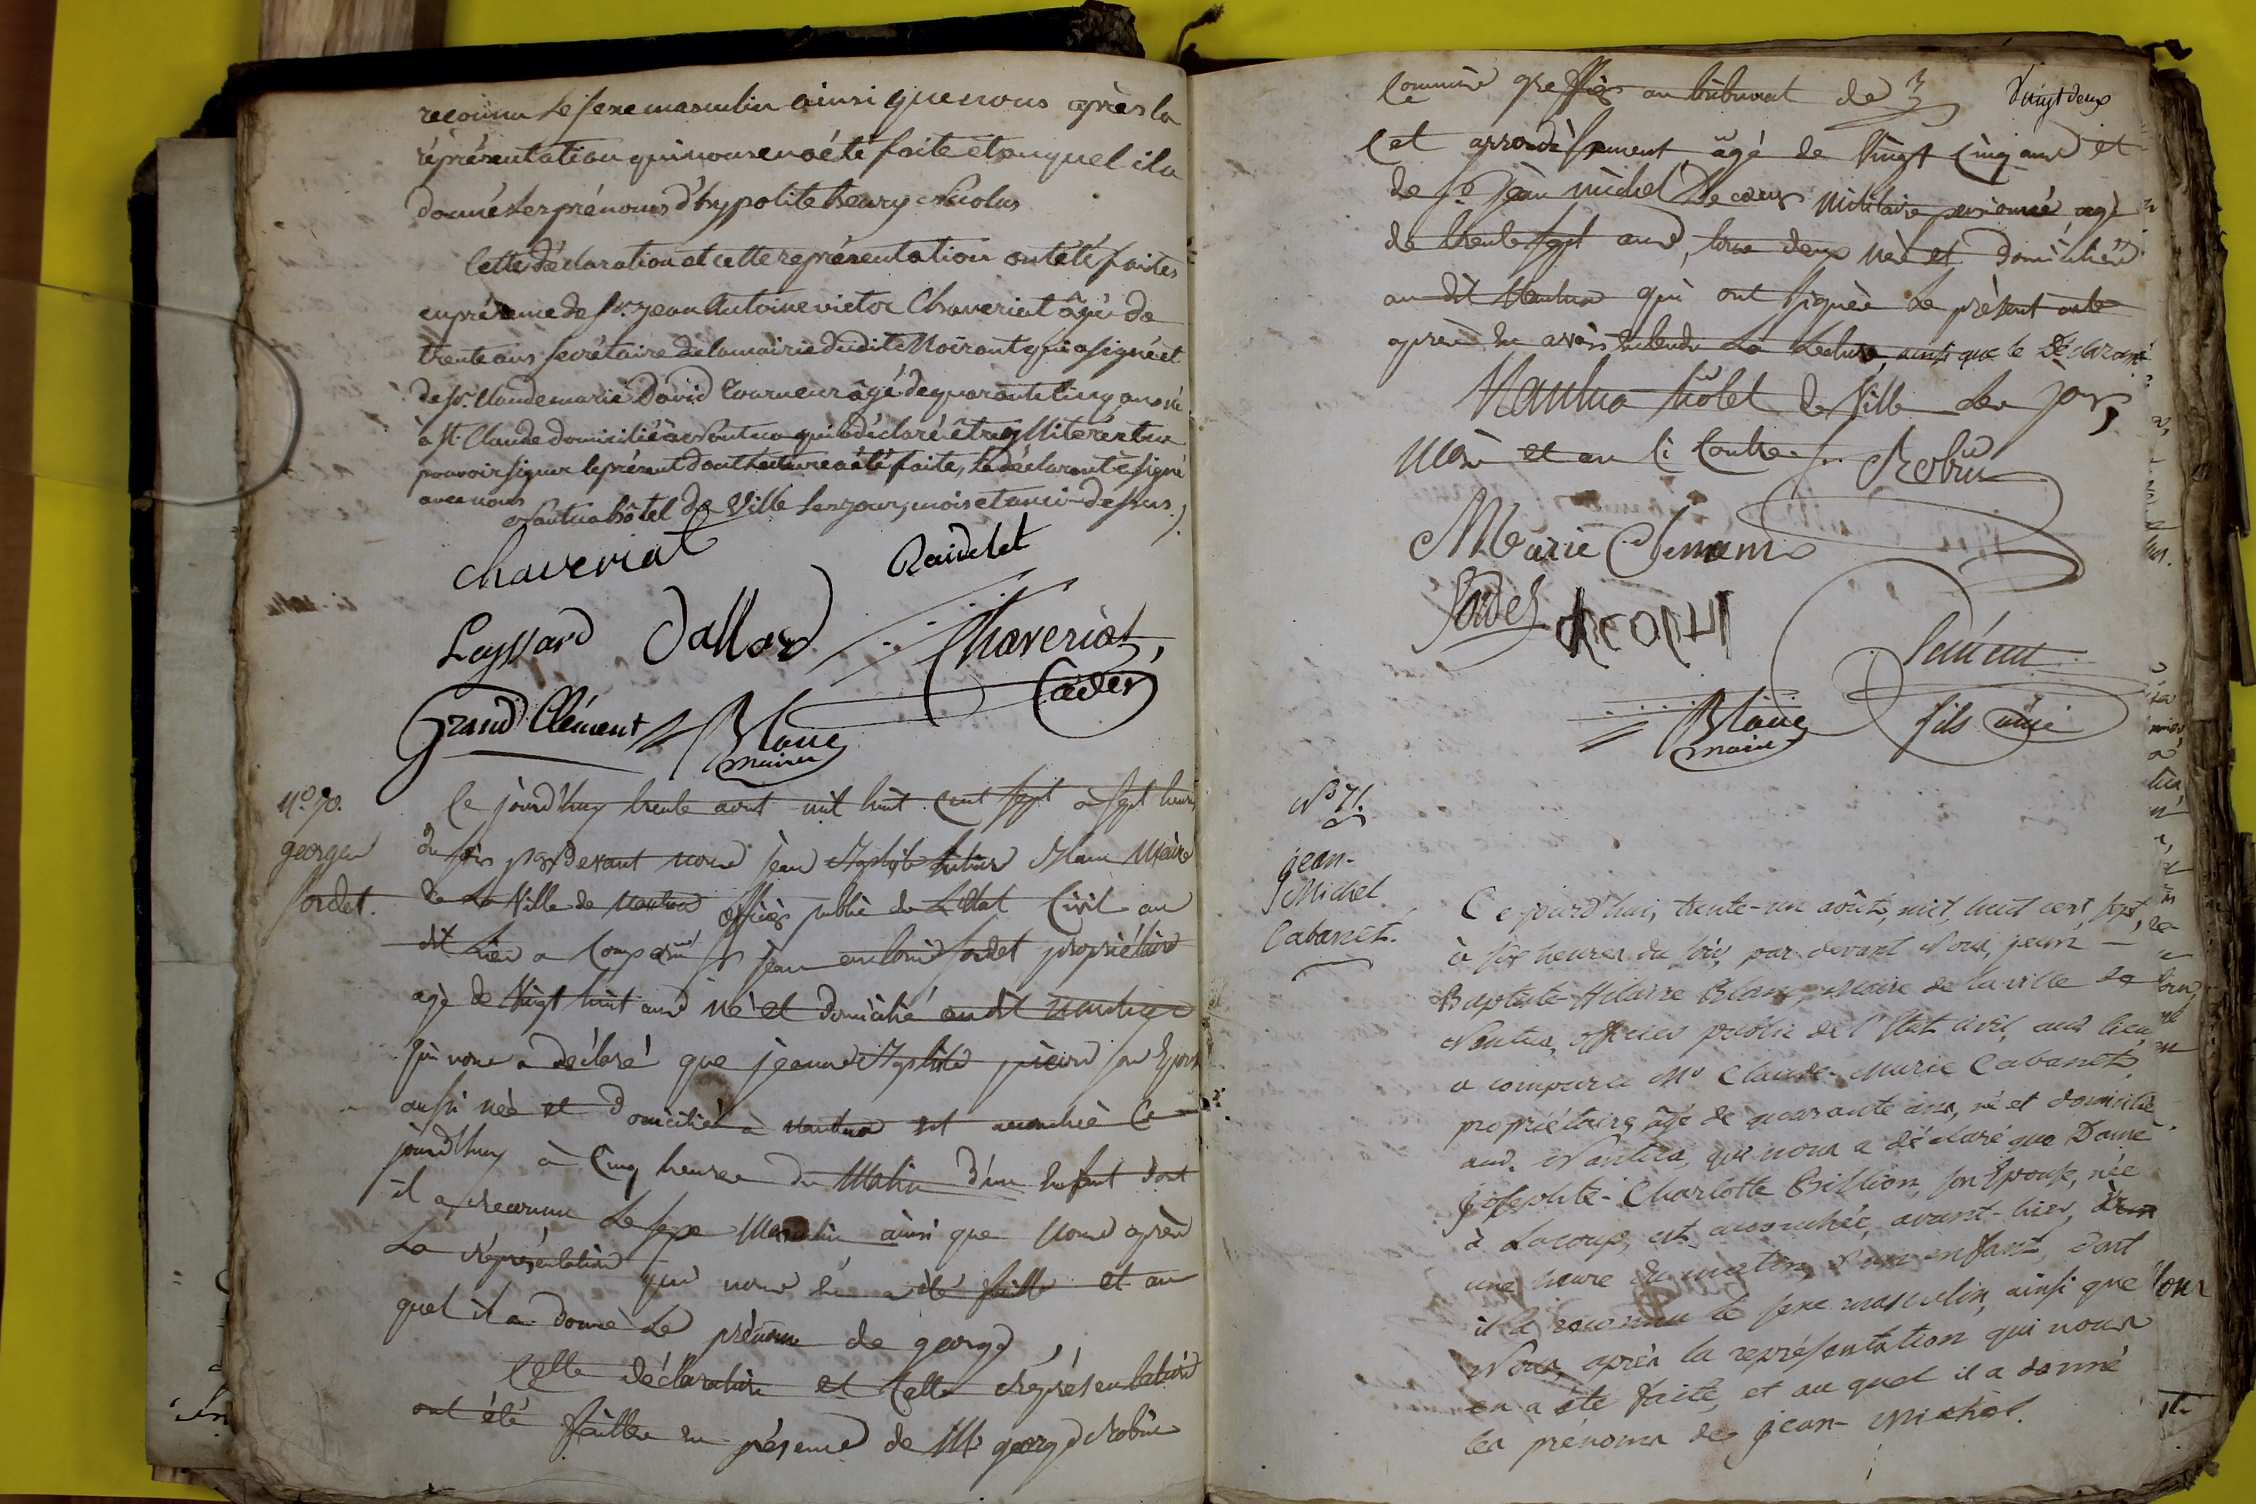 reconnu le sexe masculin ainsi que nous après la
réprésentation qui nous en a été faite et auquel il a
donné les prénoms d'hypolite henry Nicolas
Cette déclaration et cette représentation ont été faites
en présence de Sr. jean Antoine victor Chaveriat âgé de
trente ans secrétaire de la mairie dudit qui a signé et
de Sr. Claude marie David tourneur âgé de quarante cinq ans né
à St. Claude domicilié à Nantua qui a déclaré être
pouvoir signer le présent dont lecture a été faite, le déclarant a signé
avec nous
Nantua hôtel de Ville les jour, mois et an ci-dessus
Chaveriat
Raidelet
Leyssard Jallard Chaveriat
Cader
Grand Clément Blanc
maire
n.o 70.
george
Jordet.
Ce jourd'huy trente aout mil huit cent sept à sept heures
du soir pardevant nous jean Baptiste hilaire Blanc Maire
de La Ville de Nantua officier public de L'Etat Civil au
dit Lieu a comparu Sr jean Jordet propriétaire
agé de Vingt huit ans né et domicilié au dit Nantua
qui nous a déclaré que jeanne Baptiste son Epouse
aussi née et domiciliée à Nantua est accouchée Ce
jourd'huy à Cinq heures du Matin d'un Enfant dont
il a reconnu Le sexe Masculin ainsi que Nous après
La réprésentation qui nous en a été faitte et au
quel il a donné Le prénom de george
Cette déclaration et Cette réprésentation
ont été faitte en présence de Mr george Robin
Commis greffier au tribunal de
Vingt deux
Cet arrondissement âgé de Vingt Cinq ans et
de Sr. Jean michel Militaire pensionné agé
de trente sept ans, tous deux nés et domiciliés
au dit Nantua qui ont signée le présent acte
après en avoir entendu La Lecture, ainsi que le Déclarant
Nantua hôtel de Ville les jour,
Mois et an Ci Contre. Robin
Marie Clement
Jordet
Clément
Blanc
maire
fils ainé
N.o 71.
jean-
Michel
Cabanet.
Ce jourd'hui, trente-un août, mil huit cent sept,
à six heures du soir, par devant Nous, jean
Baptiste-Hilaire Blanc, Maire de la ville de
Nantua, officier public de l'Etat civil, aud. lieu,
a comparu Mr Claude-Marie Cabanet,
propriétaire, âgé de quarante ans, né et domicilié
aud. Nantua, qui nous a déclaré que Dame
Josephte-Charlotte Billion, son Epouse, née
à Lacoux, est accouchée, avant-hier,
une heure du matin, d'un enfant, dont
il a reconnu le sexe masculin, ainsi que
Nous, après la représentation qui nous
en a été faite, et au quel il a donné
les prénoms de jean-Michel.